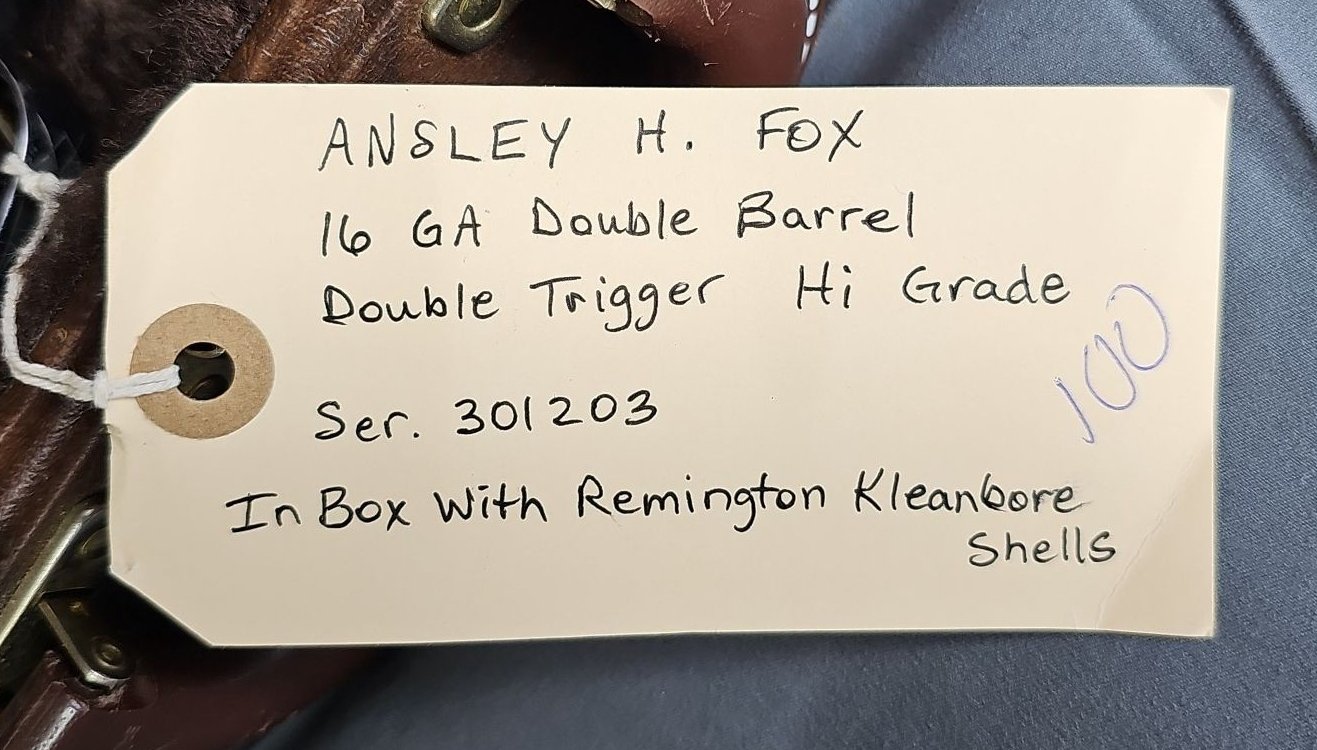 ANSLEY H. FOX
16 GA Double Barrel
Double Trigger Hi Grade
100
Ser. 301203
In Box With Remington Kleanbore
Shells